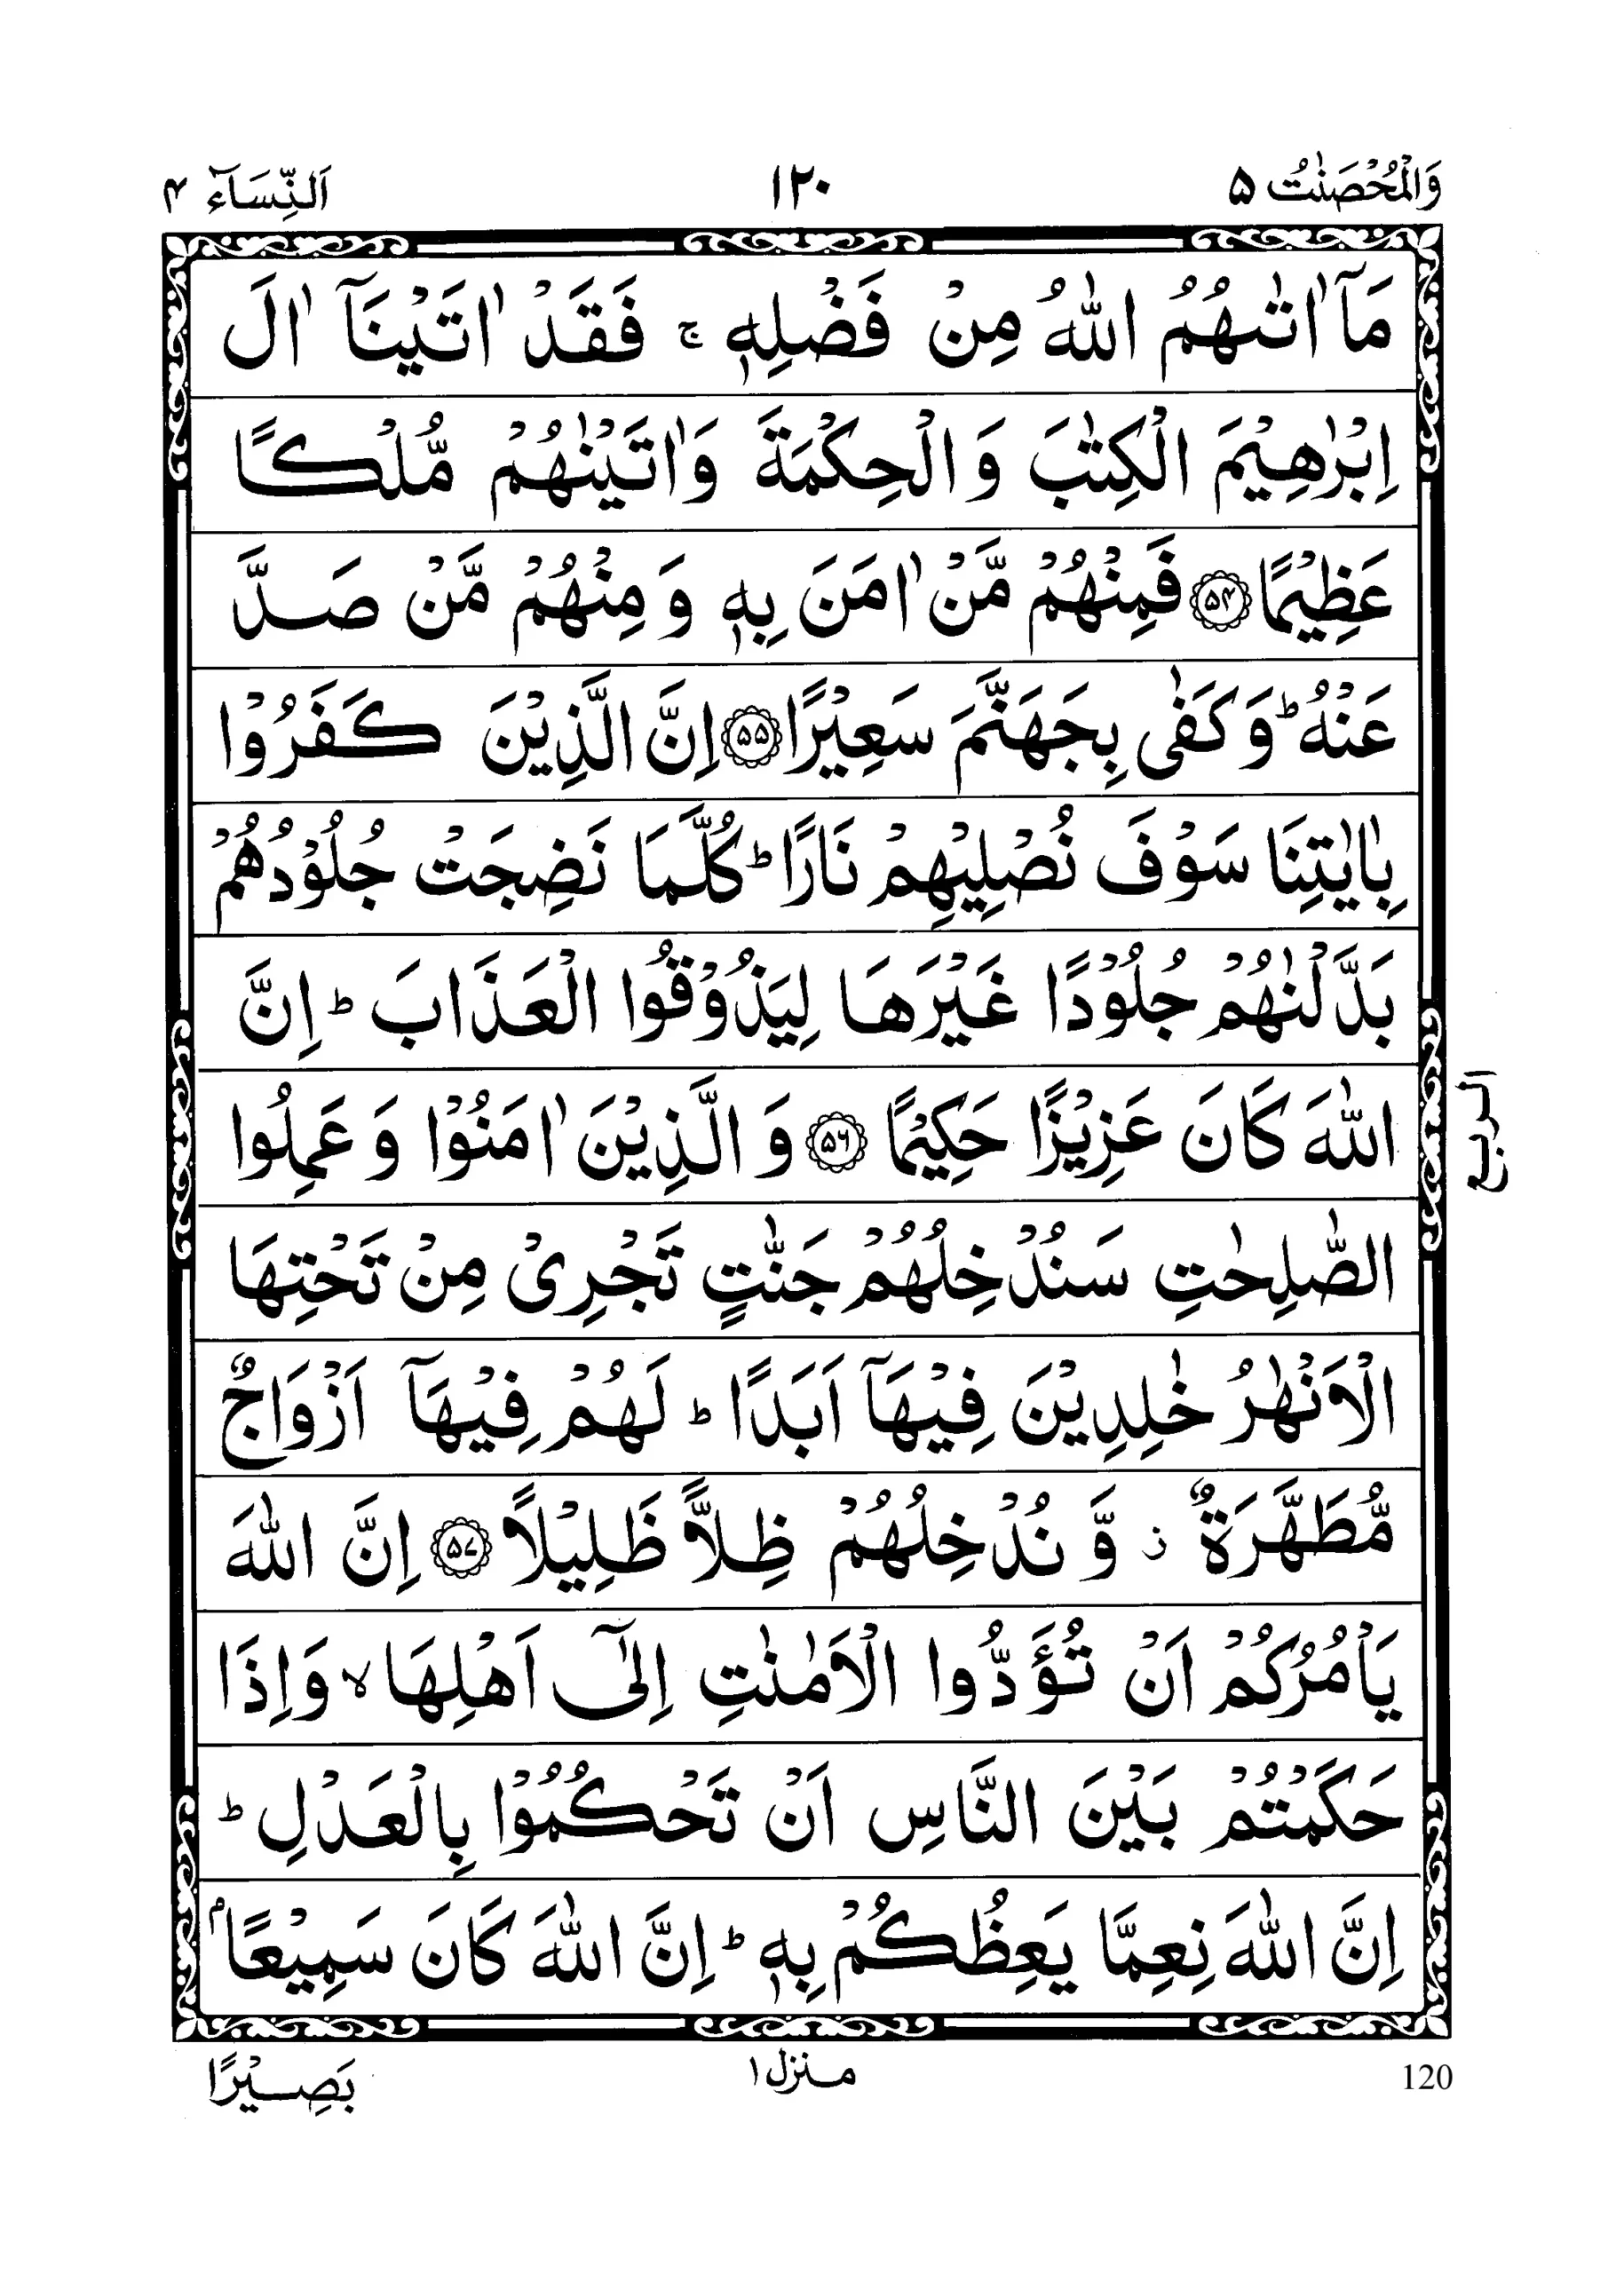 وَالْمُحْصَنٰتُ ۵ ۱۲۰ اَلنِّسَآء ۴
مَآ اٰتٰىهُمُ اللّٰهُ مِنْ فَضْلِهٖ ۚ فَقَدْ اٰتَيْنَآ اٰلَ
اِبْرٰهِيْمَ الْكِتٰبَ وَالْحِكْمَةَ وَاٰتَيْنٰهُمْ مُّلْكًا
عَظِيْمًا ﴿۵۴﴾ فَمِنْهُمْ مَّنْ اٰمَنَ بِهٖ وَمِنْهُمْ مَّنْ صَدَّ
عَنْهُ ؕ وَكَفٰى بِجَهَنَّمَ سَعِيْرًا ﴿۵۵﴾ اِنَّ الَّذِيْنَ كَفَرُوْا
بِاٰيٰتِنَا سَوْفَ نُصْلِيْهِمْ نَارًا ؕ كُلَّمَا نَضِجَتْ جُلُوْدُهُمْ
بَدَّلْنٰهُمْ جُلُوْدًا غَيْرَهَا لِيَذُوْقُوا الْعَذَابَ ؕ اِنَّ
اللّٰهَ كَانَ عَزِيْزًا حَكِيْمًا ﴿۵۶﴾ وَالَّذِيْنَ اٰمَنُوْا وَعَمِلُوا
الربع
الصّٰلِحٰتِ سَنُدْخِلُهُمْ جَنّٰتٍ تَجْرِىْ مِنْ تَحْتِهَا
الْاَنْهٰرُ خٰلِدِيْنَ فِيْهَآ اَبَدًا ؕ لَهُمْ فِيْهَآ اَزْوَاجٌ
مُّطَهَّرَةٌ ز وَّنُدْخِلُهُمْ ظِلًّا ظَلِيْلًا ﴿۵۷﴾ اِنَّ اللّٰهَ
يَاْمُرُكُمْ اَنْ تُؤَدُّوا الْاَمٰنٰتِ اِلٰٓى اَهْلِهَا ۙ وَاِذَا
حَكَمْتُمْ بَيْنَ النَّاسِ اَنْ تَحْكُمُوْا بِالْعَدْلِ ؕ
اِنَّ اللّٰهَ نِعِمَّا يَعِظُكُمْ بِهٖ ؕ اِنَّ اللّٰهَ كَانَ سَمِيْعًاۢ
120 منزل ۱ بَصِيْرًا